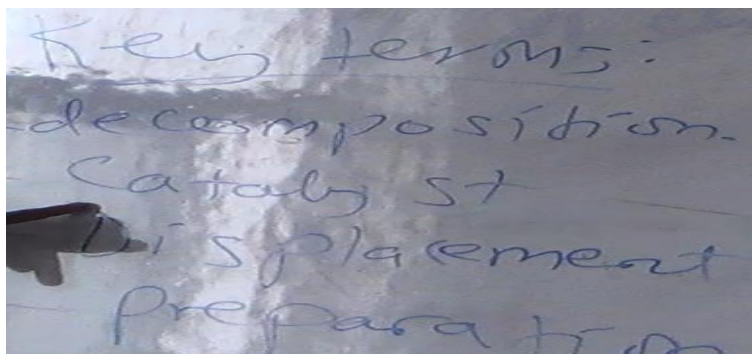 Key terms:
- decomposition.
- Catalyst
Displacement
- Preparation